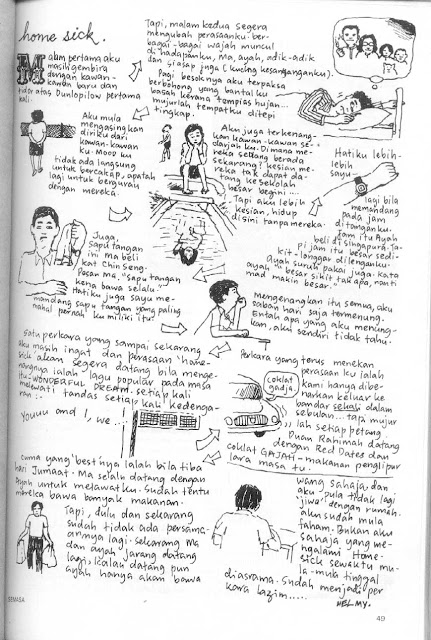 home sick.
Malam pertama aku
masih gembira
dengan kawan-
kawan baru dan
tidur atas Dunlopilow pertama
kali.
Tapi, malam kedua segera
mengubah perasaanku. ber-
bagai-bagai wajah muncul
di hadapanku, Ma, ayah, adik-adik
dan siasap juga (kucing kesanganganku).
Pagi besoknya aku terpaksa
berbohong yang bantalku
basah kerana tompias hujan...
mujurlah tempatku ditepi
tingkap.
Aku mula
mengasingkan
diriku dari
kawan-kawan
ku. Moodku
tidak ada langsung
untuk bercakap, apatah
lagi untuk bergurau
dengan mereka.
Aku juga terkenang-
kan kawan-kawan se-
dayahku. Dimana me-
reka sedang berada
sekarang? kesian me-
reka tak dapat da-
tang ke sekolah
besar begini...
Tapi aku lebih
kesian, hidup
disini tanpa mereka.
Hatiku lebih-
lebih
sayu
lagi bila
memandang
pada jam
ditanganku.
Jam itu Ayah
beli di Singapura. Ta-
pi jam itu besar sedi-
kit - longgar dilenganku.
Ayah suruh pakai juga. kata
ayah, "besar sikit tak apa, nanti
mad makin besar."
Juga
sapu tangan
ini Ma beli
kat Chin Seng.
Pasan Ma, "sapu tangan
kena bawa selalu."
Hatiku juga sayu me-
mandang sapu tangan yang paling
mahal pernah ku miliki itu.
Mengenangkan itu semua, aku
saban hari saja termenung.
Entah apa yang aku menung-
kan, aku sendiri tidak tahu.
Satu perkara yang sampai sekarang
aku masih ingat dan perasaan 'home
sick' akan segera datang bila menge-
nangnya ialah lagu popular pada masa
itu - WONDERFUL DREAM. setiap kali
melewati tandas setiap kali kedenga-
ran :-
Youuu and I, we...
Perkara yang terus menekan
perasaan ku ialah
kami hanya dibe-
narkan keluar ke
bandar sekali dalam
sebulan.... tapi mujur
lah setiap petang
Puan Rahimah datang
dengan Red Dates dan
coklat GAJAH - makanan penglipur
lara masa tu.
coklat
gadja
Cuma yang 'best'nya ialah bila tiba
hari Jumaat. Ma selalu datang dengan
Ayah untuk melawatku. Sudah tentu
mereka bawa banyak makanan.
Tapi, dulu dan sekarang
sudah tidak ada persama-
annya lagi. sekarang Ma
dan ayah jarang datang
lagi, kalau datang pun
ayah hanya akan bawa
wang sahaja, dan
aku pula tidak lagi
'jiwa' dengan rumah.
aku sudah mula
faham. Bukan aku
sahaja yang me-
ngalami Home-
sick sewaktu mu-
la-mula tinggal
diasrama. Sudah menjadi per
kara lazim.....
HELMY.
SEMASA
49